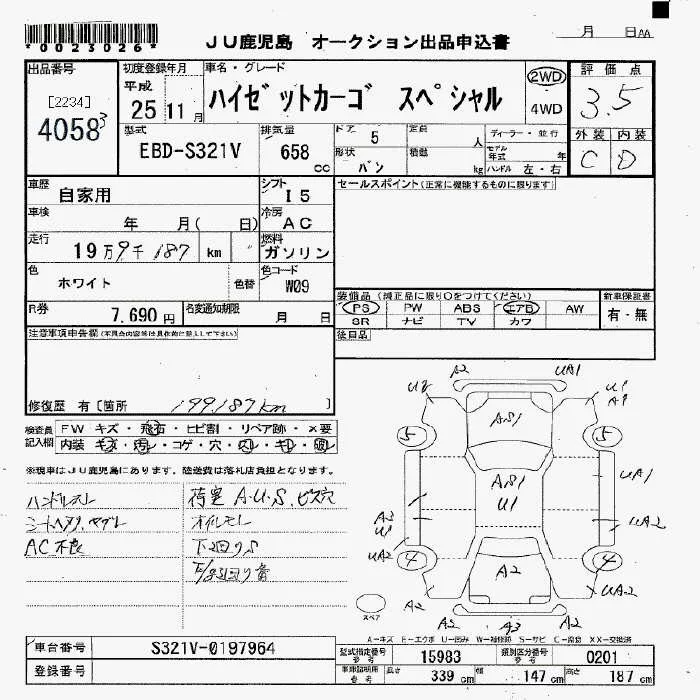 *0023026*
JU鹿児島 オークション出品申込書
月 日AA
出品番号
[2234]
40583
初度登録年月
平成
25 11月
車名・グレード
ハイゼットカーゴ スペシャル
2WD
4WD
評価点
3.5
外装 内装
C D
型式
EBD-S321V
排気量
658
cc
ドア 5
定員 人
形状 バン
積載 kg
ディーラー・並行
モデル年式 年
ハンドル 左・右
車歴
自家用
シフト
I5
セールスポイント(正常に機能するものに限ります)
車検
年 月( 日)
冷房
AC
走行
19万9千187 km
燃料
ガソリン
色
ホワイト
色替
色コード
W09
R券
7.690円
名変通知期限
月 日
装備品(純正品に限り○をつけてください)
PS PW ABS エアB AW
SR ナビ TV カワ
新車保証書
有・無
後日品
注意事項申告欄(不具合内容等は具体的に記入して下さい)
修復歴 有[箇所 199.187km ]
検査員記入欄
FW キズ・飛石・ヒビ割・リペア跡・×要
内装 キズ・汚レ・コゲ・穴・スレ・キレ・破レ
※現車はJU鹿児島にあります。陸送費は落札店負担となります。
ハンドルスレ
AC不良
荷室 A.U.S.ビス穴
オイルモレ
下回りS
A2 UA1
U2 U1
A1
AS1
5 5
AS1
U1
UA1
A2
U1
UA2
UA2
4 4
A2
UA2
A2 A2 A3 A2
スペア
A-キズ E-エクボ U-凹み W-補修跡 S-サビ C-腐食 XX-交換済
車台番号
S321V-0197964
登録番号
型式指定番号 15983
類別区分番号 0201
長さ 339cm 幅 147cm 高さ 187cm